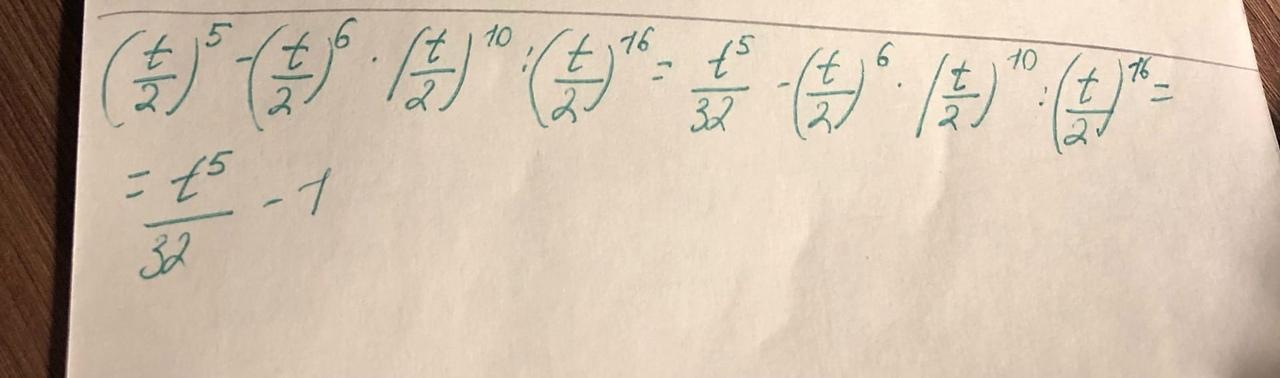 (t/2)^5 - (t/2)^6 · (t/2)^10 : (t/2)^16 = t^5/32 - (t/2)^6 · (t/2)^10 : (t/2)^16 =
= t^5/32 - 1